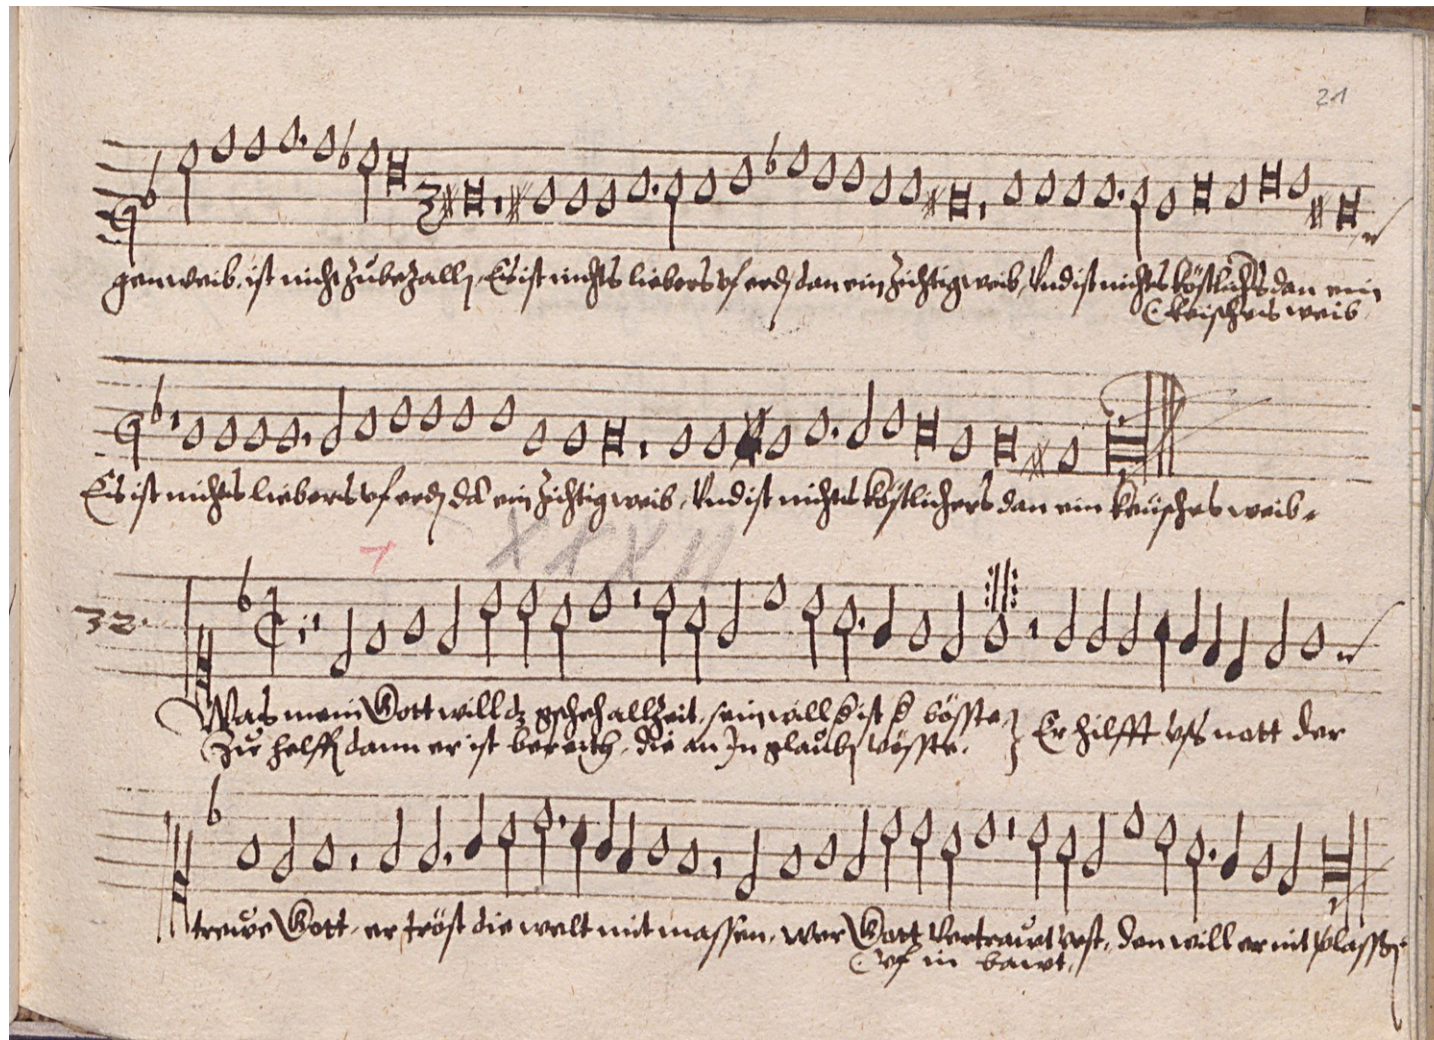 21
gem weib, ist nicht zůbezalln, Es ist nichts liebers vf erdn dan ein zichtig weib, Vnd ist nichts köstlichs dan ein
keischeis weib
Es ist nichts liebers vf erdn dā ein zichtig weib, Vnd ist nichts köstlichers dan ein keüsches weib
XXXII
32.
Was mein Gott will dz gscheh allzeit, sein will ist böste
Zů helffn dann er ist bereith, die an In glaubn vöste.
Er hilfft vſs nott der
trewe Gott, er tröst die welt mit massen, wer Gott vertrawt vest, den will er nit
vf in bawt,